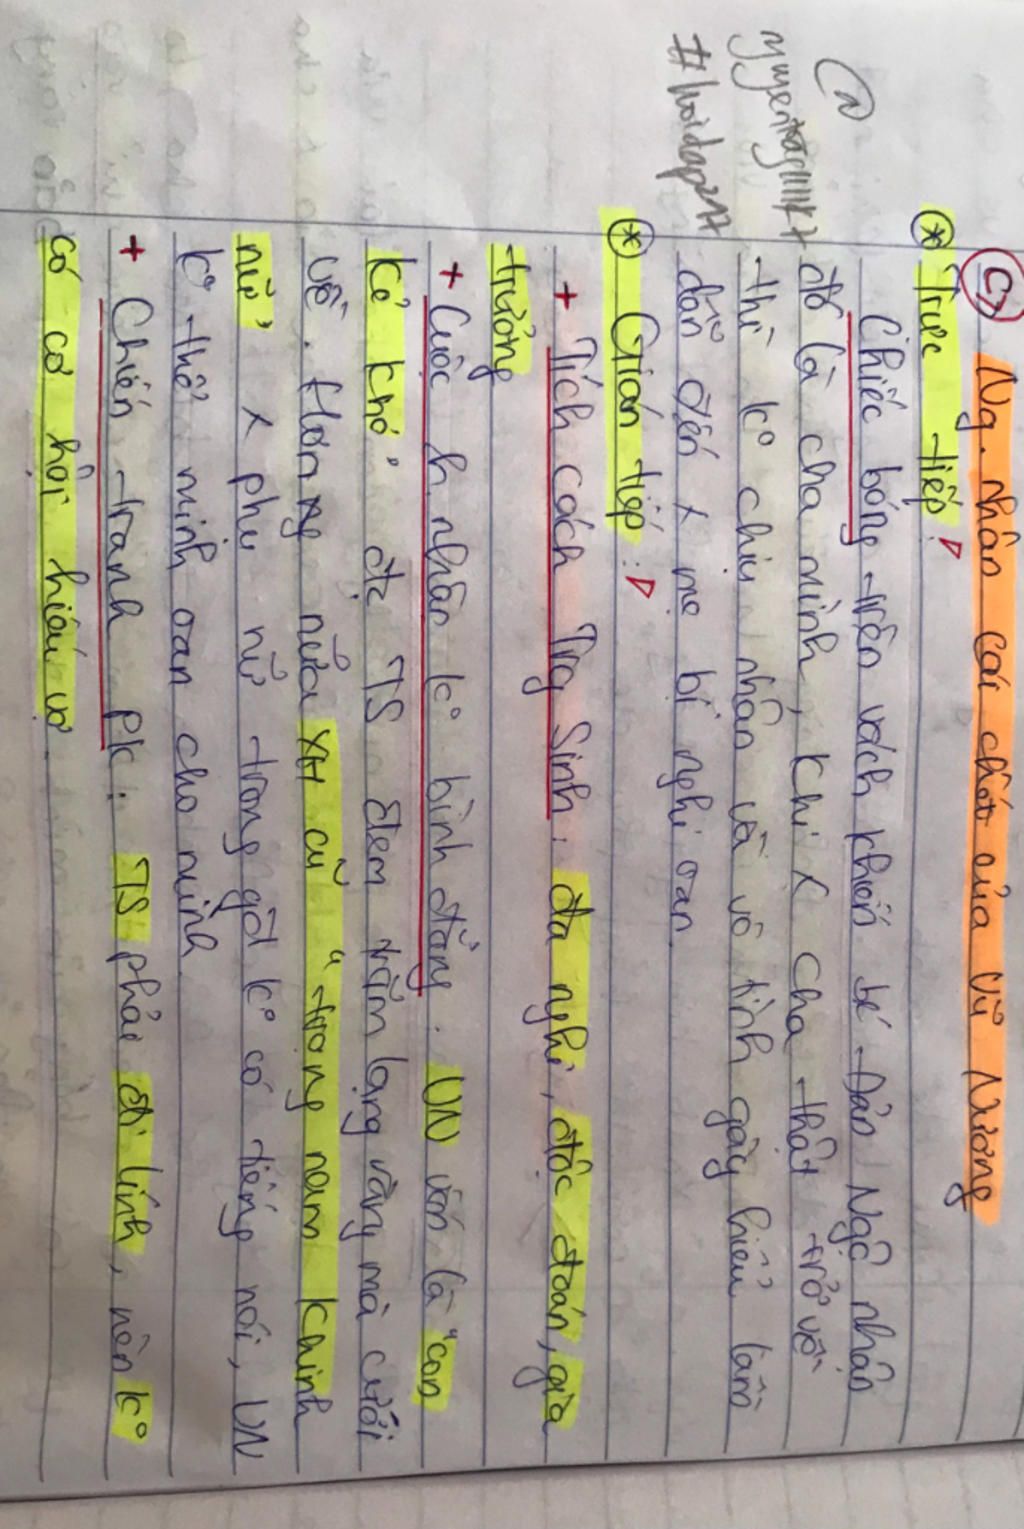 c) Ng. nhân cái chết của Vũ Nương
* Trực tiếp:
Chiếc bóng trên vách khiến bé Đản Ngộ nhận
đó là cha mình, khi x cha thật trở về
thì ko chịu nhân và vô tình gây hiểu lầm
dẫn đến x mẹ bị nghi oan
* Gián tiếp:
+ Tích cách Trg Sinh: đa nghi, độc đoán, gia
trưởng
+ Cuộc h. nhân ko bình đẳng: VN vốn là "con
kẻ khó" đc TS đem trăm lạng vàng mà cưới
về. Hơn ng nữa XH cũ "trọng nam khinh
nữ" x phụ nữ trong gđ ko có tiếng nói, VN
ko thể minh oan cho mình
+ Chiến tranh pk: TS phải đi lính, nên ko
có cơ hội hiểu vợ.
@
#hoidap247